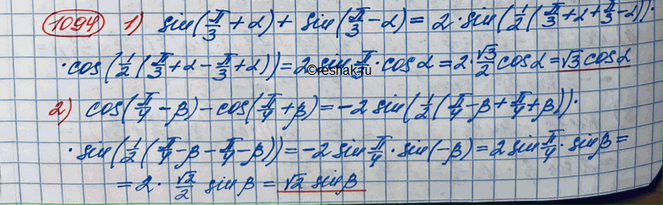 1094 1) sin(π/3 + α) + sin(π/3 − α) = 2 · sin(1/2(π/3 + α + π/3 − α)) ·
· cos(1/2(π/3 + α − π/3 + α)) = 2 sin π/3 · cos α = 2 · √3/2 cos α = √3 cos α
©reshak.ru
2) cos(π/4 − β) − cos(π/4 + β) = −2 sin(1/2(π/4 − β + π/4 + β)) ·
· sin(1/2(π/4 − β − π/4 − β)) = −2 sin π/4 · sin(−β) = 2 sin π/4 · sin β =
= 2 · √2/2 sin β = √2 sin β